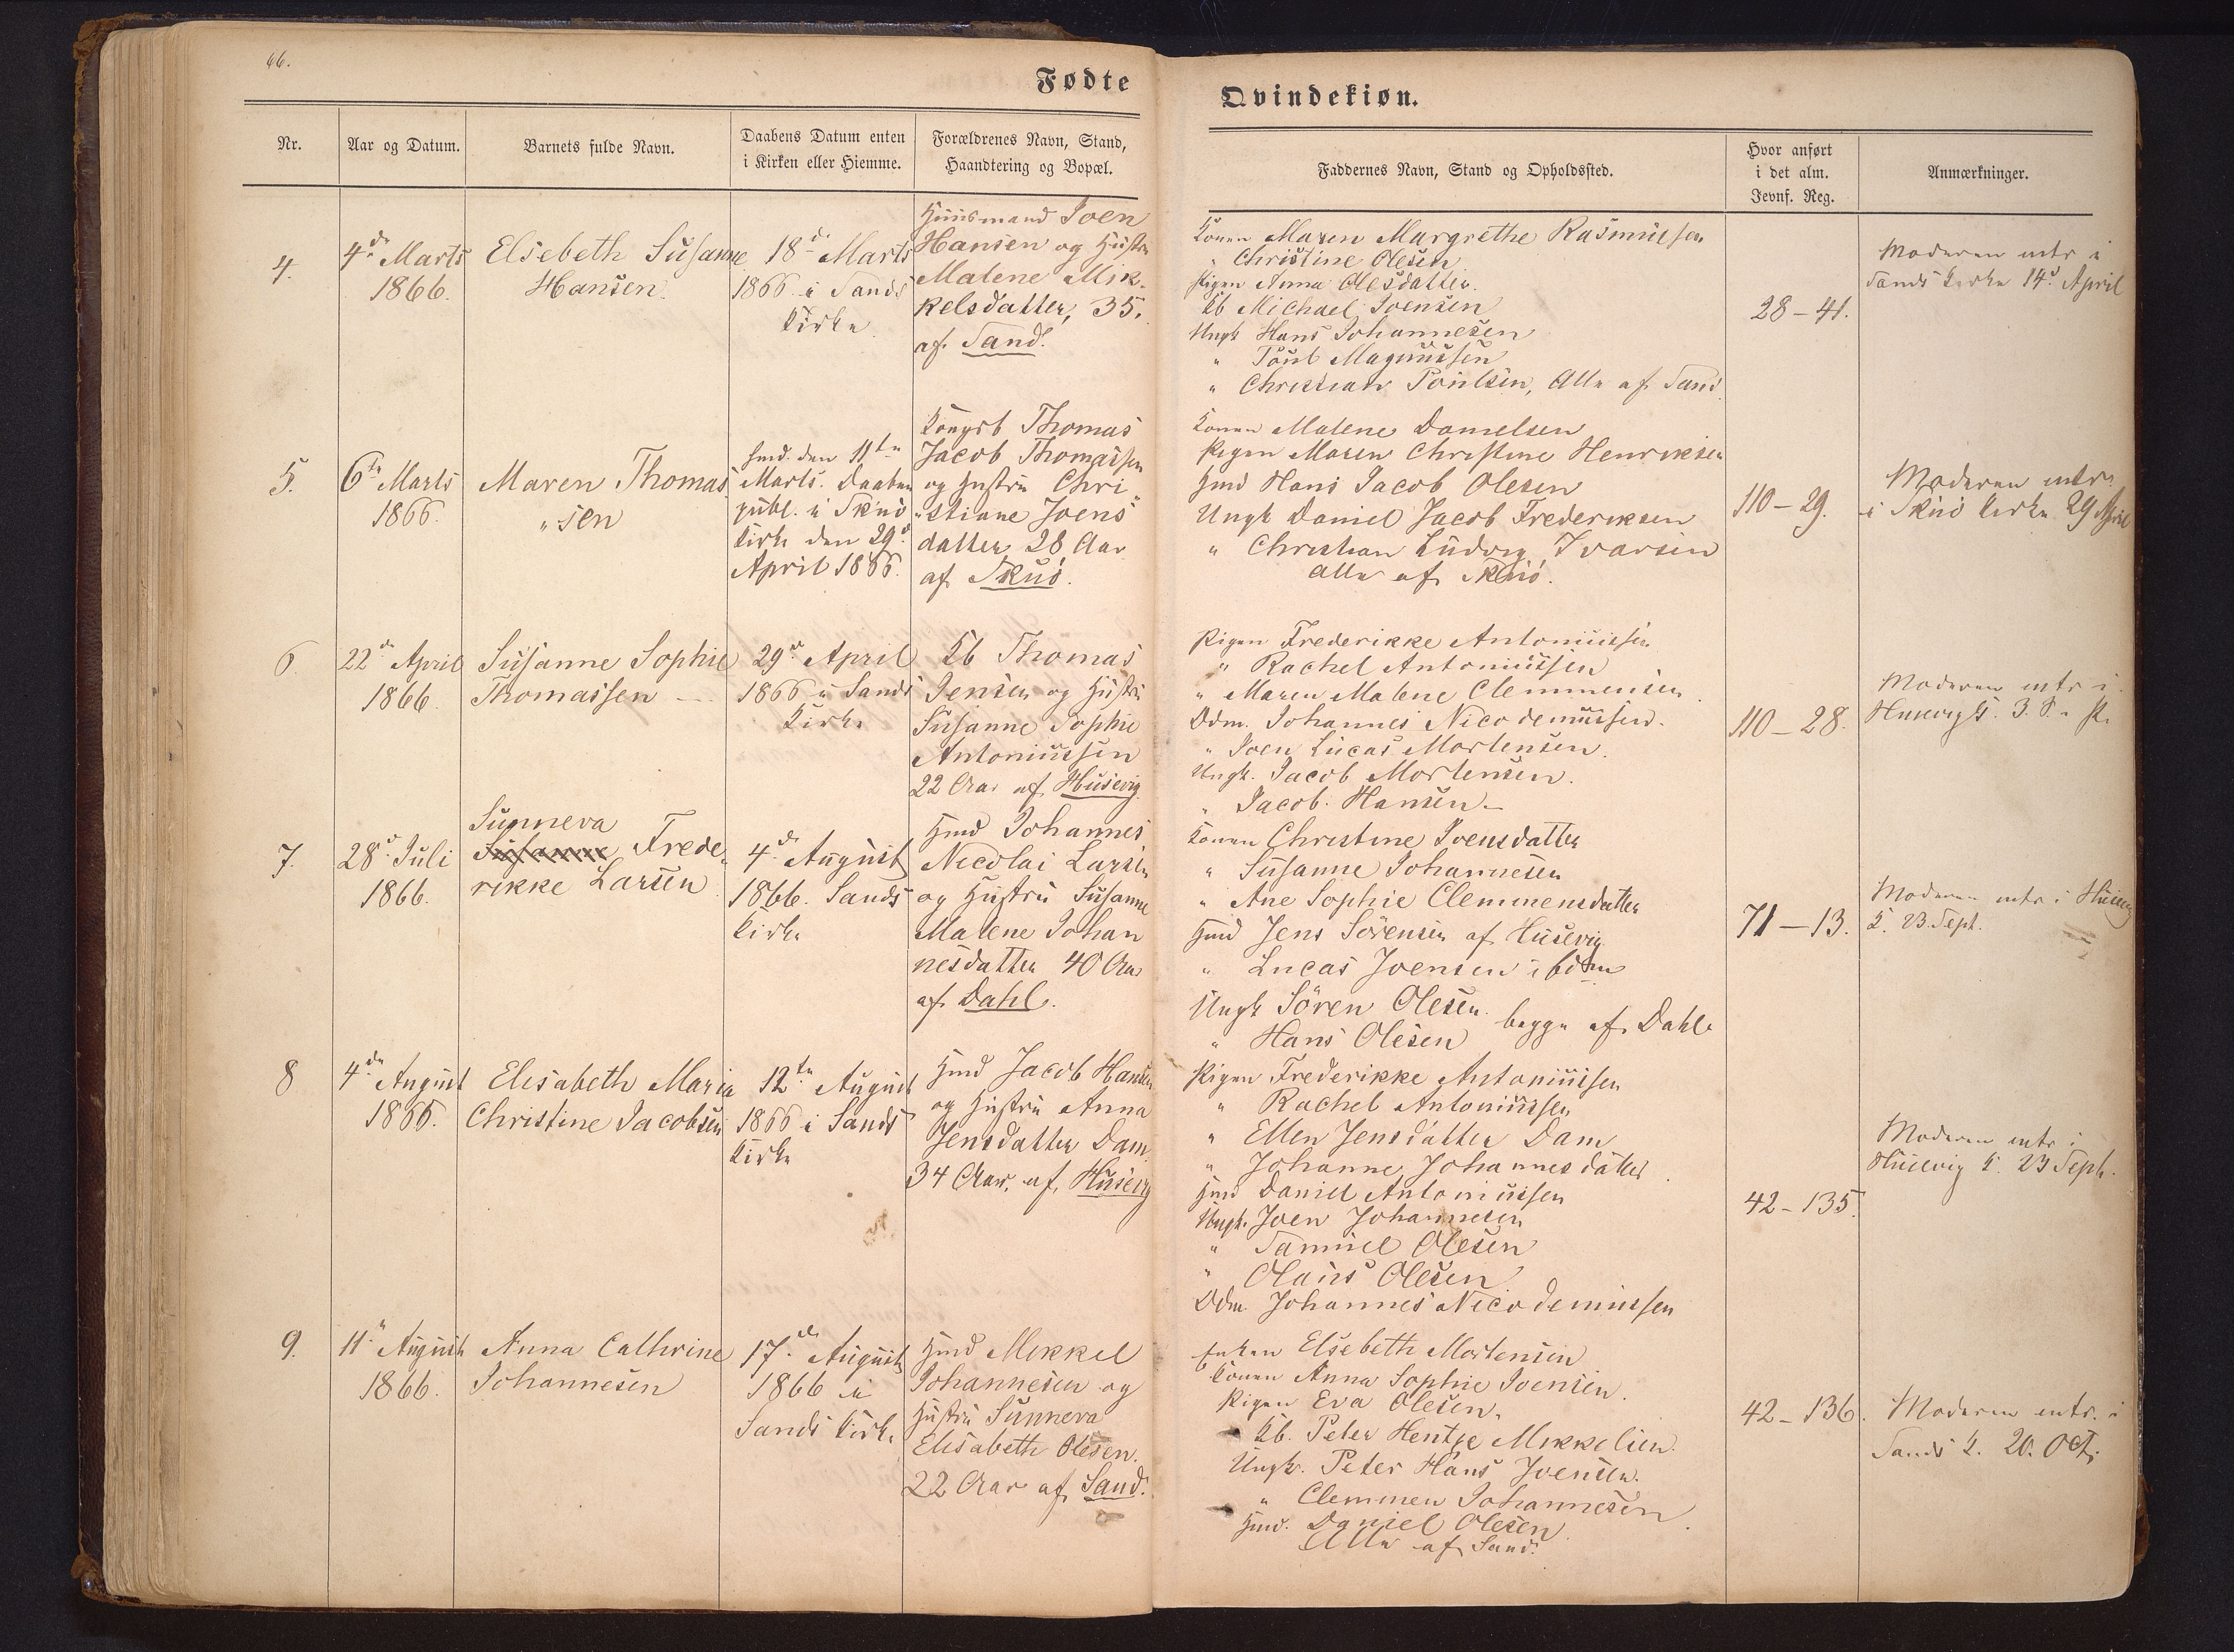 66.
Fødte
Qvindekiøn.
Nr.
Aar og Datum.
Barnets fulde Navn.
Daabens Datum enten
i Kirken eller Hiemme.
Forældrenes Navn, Stand,
Haandtering og Bopæl.
Faddernes Navn, Stand og Opholdssted.
Hvor anført
i det alm.
Jevnf. Reg.
Anmærkninger.
4.
4de Marts
1866.
Elsebeth Susanne
Hansen.
18de Marts
1866 i Sands
Kirke
Huusmand Joen
Hansen og Hustru
Malene Mik-
kelsdatter, 35.
af Sand.
Konen Maren Margrethe Rasmussen
" Christine Olesen
Pigen Anna Olesdatter.
Kb Michael Joensen
Ungk Hans Johannesen
" Poul Magnussen
" Christian Poulsen, Alle af Sand
28-41.
Moderen intr i
Sands Kirke 14d April
5.
6te Marts
1866.
Maren Thomas
"sen
hmd. den 11te
Marts. Daaben
publ. i Skuø
Kirke den 29d
April 1866.
Kongsb Thomas
Jacob Thomassen
og Hustru Chri
"stiane Joens"
datter 28 Aar
af Skuö.
Konen Malene Danielsen
Pigen Maren Christine Henriksen
Hmd Hans Jacob Olesen
Ungk Daniel Jacob Frederiksen
" Christian Ludvig Ivarsen
alle af Skuö.
110-29.
Moderen intr.
i Skuö Kirke 29 April
6.
22de April
1866.
Susanne Sophie
Thomassen
29de April
1866 i Sands
Kirke
Kb Thomas
Jensen og Hustru
Susanne Sophie
Antoniussen
22 Aar af Husevig
Pigen Frederikke Antoniussen
" Rachel Antoniussen
" Maren Malene Clemmensen
Ddm. Johannes Nicodemussen.
" Joen Lucas Mortensen.
Ungk. Jacob Mortensen.
" Jacob Hansen.
110-28.
Moderen intr i
7.
28d Juli
1866.
Sunneva
Susanne Frede-
rikke Larsen
4de August
1866. Sands
Kirke
Hmd Johannes
Nicolai Larsen
og Hustru Susanne
Malene Johan
nesdatter 40 Aar
af Dahl.
Konen Christine Joensdatter
" Susanne Johannesen
" Ane Sophie Clemmensdatter
Hmd Jens Sörensen af Husevig
" Lucas Joensen ibidem
Ungk Sören Olesen.
" Hans Olesen begge af Dahl.
71-13.
Moderen intr i Husevig
K. 23. Sept.
8
4de August
1866.
Elisabeth Maria
Christine Jacobsen
12te August
1866 i Sands
Kirke
Hmd Jacob Hansen
og Hustru Anna
Jensdatter Dam
34 Aar, af Husevig
Pigen Frederikke Antoniussen
" Rachel Antoniussen
" Ellen Jensdatter Dam
" Johanne Johannesdatter
Hmd Daniel Antoniussen
Ungk. Joen Johannesen
" Samuel Olesen
" Olaus Olesen
Ddm Johannes Nicodemussen
42-135.
Moderen intr i
Husevig K. 23 Sept.
9.
11te August
1866.
Anna Cathrine
Johannesen
17de August
1866 i
Sands Kirke
Hmd Mikkel
Johannesen og
Hustru Sunneva
Elisabeth Olesen.
22 Aar af Sand.
Enken Elsebeth Mortensen
Konen Anna Sophie Joensen.
Pigen Eva Olesen.
Kb. Peter Hentze Mikkelsen.
Ungk. Peter Hans Joensen.
" Clemmen Johannesen
Hmd. Daniel Olesen.
Alle af Sand.
42-136.
Moderen intr. i
Sands K. 20. Oct.